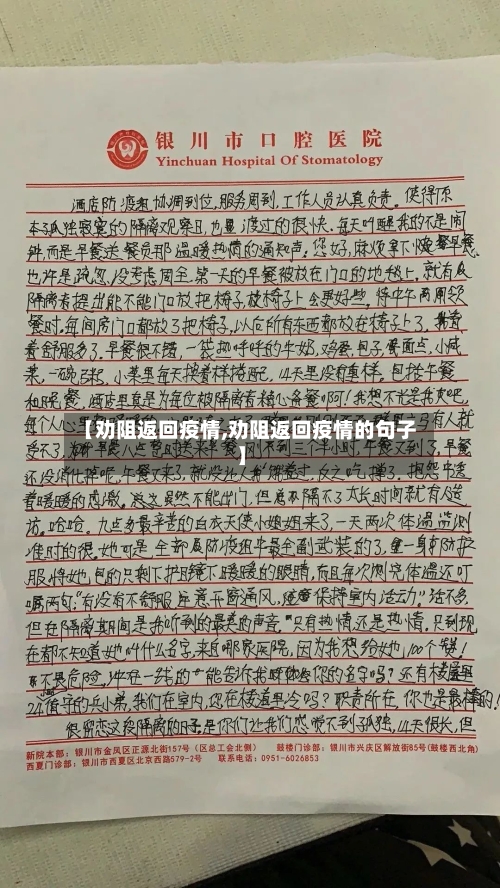 银川市口腔医院
Yinchuan Hospital Of Stomatology
酒店防疫组协调到位,服务周到,工作人员认真负责。使得原
本孤独寂寞的隔离观察且也过的很快。每天叫醒我的不是闹
钟,而是早餐送餐员那温暖热情的通知声:您好,麻烦拿下早餐。
也许是疏忽,没考虑周全.第一天的早餐被放在门口的地毯上。就有
隔离者提出能不能门口放把椅子,放椅子上会更好些。待中午再用
餐时,每间房门口都放了把椅子,以后所有东西都放在椅子上了。
着舒服多了。早餐很不错,一袋热呼呼的牛奶,鸡蛋,包子,面点,小咸
菜,一碗.小菜里每天换着样搭配,14天里没有重样。包括午餐
和晚餐,酒店里真是为每位被隔离者精心备餐啊!我想不光是我吧,
每个人心里
【劝阻返回疫情,劝阻返回疫情的句子
】
有人就
受不了.早餐送来早餐不到三个半小时,午餐又到了,早餐
还没消化掉呢,午餐又来了,就没让人
着暖暖的感激。虽然不能出门,但离不了太长时间就有人造
访。哈哈。九点多最辛苦的白衣天使小姐姐来了,一天两次体温监测
准时的很。她可是全部防疫组中最全副武装的了,一身防护
服将她包的只剩下护目镜下暖暖的眼睛,而且每次测完体温还叮
嘱两句:“有没有不舒服,注意开窗通风,保持室内活动”话不多,
但在隔离期间是我听到的最美的声音。只有热情还是热情。只到现
在都不知道她叫什么名字,来自哪家医院,因为我想给她100个赞!
不畏危险,冲在一线的“能告诉我你的名字吗?还有楼
24值守的兵小弟,我们在室内,您在楼道里冷吗?职责所在,你也是最棒的!
很留恋这段隔离的日子,是你们让我们感觉不到孤独,14天很长,但
新院本部:银川市金凤区正源北街157号(区总工会北侧) 鼓楼门诊部:银川市兴庆区解放街85号(鼓楼西北角)
西夏门诊部:银川市西夏区北京西路579-2号 联系电话:0951-6026853